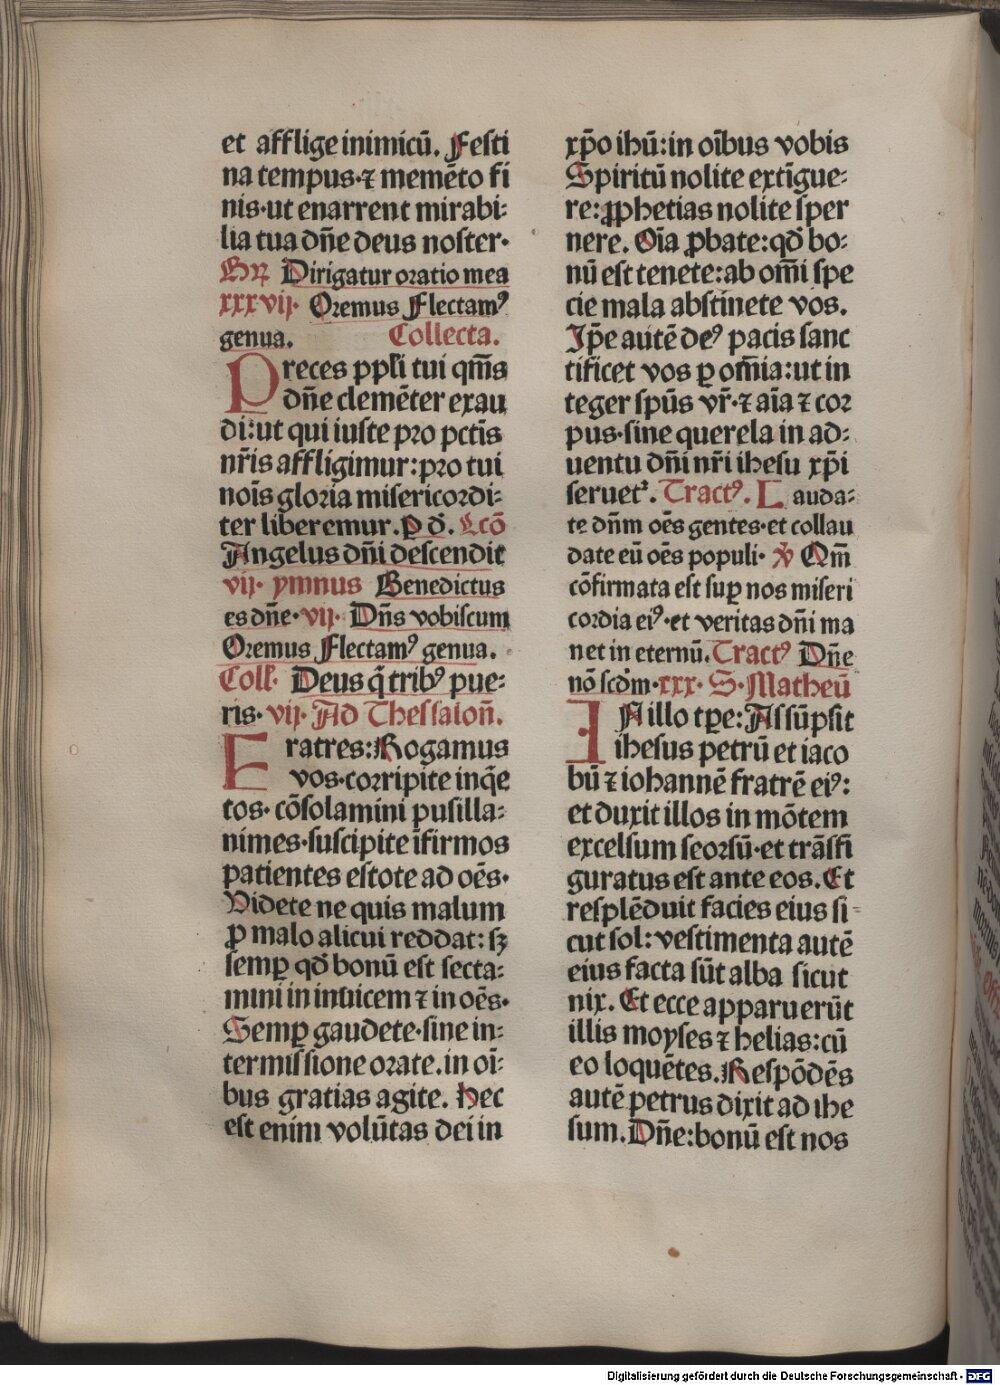 et afflige inimicū. Feſti
na tempus·⁊ memēto fi
nis·ut enarrent mirabi-
lia tua dñe deus noſter·
Gꝝ Dirigatur oratio mea
xxxvij· Oremus Flectamꝰ
genua. Collecta.
Preces ppl̄i tui qm̄s
dñe clemēter exau
di:ut qui iuſte pro pctīs
nr̄is affligimur:pro tui
noīs gloria miſericordi-
ter liberemur.ꝑ d̄. Lcō
Angelus dñi deſcendit
vij· ymnus Benedictus
es dñe·vij· Dn̄s vobiſcum
Oremus Flectamꝰ genua.
Coll̄· Deus q̄ tribꝰ pue-
ris· vij· Ad Theſſaloñ.
Fratres:Rogamus
vos·corripite inq̄e
tos· cōſolamini puſilla-
nimes·ſuſcipite īfirmos
patientes eſtote ad oēs·
Videte ne quis malum
ꝓ malo alicui reddat: ſꝫ
ſemꝑ qđ bonū eſt ſecta-
mini in inuicem ⁊ in oēs·
Semꝑ gaudete·ſine in-
termiſſione orate.in oī-
bus gratias agite. Hec
eſt enim volūtas dei in
xp̄o ihū:in oībus vobis
Spiritū nolite extīgue-
re:ꝓphetias nolite ſper
nere. Oīa ꝓbate:qđ bo-
nū eſt tenete:ab om̄i ſpe
cie mala abſtinete vos.
Ip̄e autē deꝰ pacis ſanc
tificet vos ꝑ om̄ia:ut in
teger ſpūs vr̄·⁊ aīa ⁊ cor
pus·ſine querela in ad-
uentu dñi nr̄i iheſu xp̄i
ſeruet᷑. Tractꝰ. Lauda-
te dñm oēs gentes·et collau
date eū oēs populi· ℣ Qm̄
cōfirmata eſt ſuꝑ nos miſeri
cordia eiꝰ·et veritas dñi ma
net in eternū.Tractꝰ Dñe
nō ſcđm·xxx· S·Matheū
IN illo tꝑe:Aſſūpſit
iheſus petrū et iaco
bū ⁊ iohannē fratrē eiꝰ:
et duxit illos in mōtem
excelſum ſeorſū·et trāſfi
guratus eſt ante eos.Et
reſplēduit facies eius ſi-
cut ſol:veſtimenta autē
eius facta ſūt alba ſicut
nix. Et ecce apparuerūt
illis moyſes ⁊ helias:cū
eo loquētes.Reſpōdēs
autē petrus dixit ad ihe
ſum.Dñe:bonū eſt nos
Digitalisierung gefördert durch die Deutsche Forschungsgemeinschaft - DFG